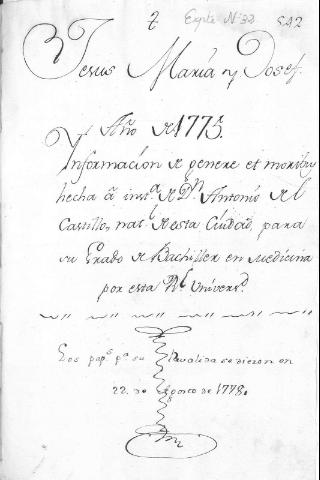 2 Expte N.º 32 542
Jesus Maria y Josef.
Año de 1775.
Informacion de genere et moribus
hecha á inst.ª de D.n Antonio del
Castillo, nat.l de esta Ciudad, para
su Grado de Bachiller en Medicina
por esta R.l Univers.d
Los pap.s p.a su Revalida se dieron en
22. de Agosto de 1778.